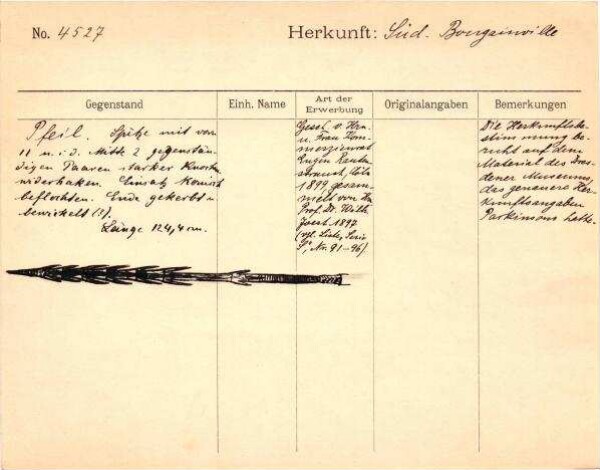 No. 4527
Herkunft: Süd. Bougainville
Gegenstand
Einh. Name
Art der
Erwerbung
Originalangaben
Bemerkungen
Pfeil. Spitze mit vorn
11 u. i. d. Mitte 2 gegenstän-
digen Paaren starker Knochen-
widerhaken. Einsatz konisch
beflochten. Ende gekerbt u.
bewickelt (?).
Länge 124,4 cm.
Gesch. v. Hrn.
u. Frau Kom-
merzienrat
Eugen Rauten-
strauch, Cöln
1899 gesam-
melt von Hn
Prof. Dr. Wilh.
Joest 1897
(vgl. Liste, Serie
Nr. 91-96).
Die Herkunftsbe-
stimmung be-
ruht auf dem
Material des Dres-
dener Museums,
das genauere Her-
kunftsangaben
Parkinsons hatte.